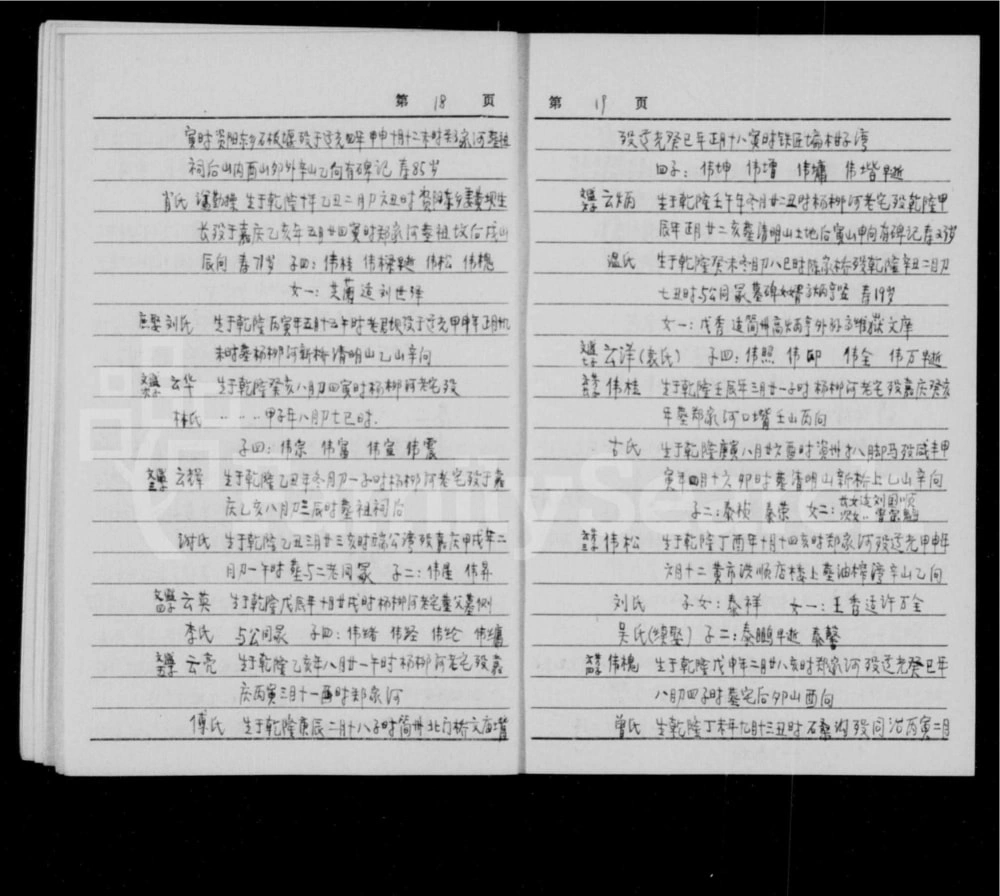 第 18 页
寅时资阳东乡石板堰殁于道光四年甲申十月十二未时郑家河墓祖
祠后山内酉山卯外辛山乙向有碑记 寿85岁
肖氏 谨勤俭 生于乾隆十年乙丑二月初六丑时资阳东乡娄坝生
长殁于嘉庆乙亥年五月廿四寅时郑家河墓祖坟后戌山
辰向 寿71岁 子四：伟桂 伟樑早逝 伟松 伟槐
女一：芙蓉适刘世铎
刘氏 生于乾隆丙寅年五月十五午时老君坝殁于道光甲申年正月初九
未时墓杨柳河新桥清明山乙山辛向
云华 生于乾隆癸亥八月初四寅时杨柳河老宅殁
林氏 〃〃〃甲子年八月初七巳时.
子四：伟宗 伟富 伟宣 伟震
云耀 生于乾隆乙丑年冬月初一子时杨柳河老宅殁于嘉
庆乙亥八月初三辰时墓祖祠后
谢氏 生于乾隆乙丑三月廿三亥时湾殁嘉庆甲戌年二
月初一午时墓与二老同冢 子二：伟星 伟昇
云英 生于乾隆戊辰年十月廿戌时杨柳河老宅墓父墓侧
李氏 与公同冢 子四：伟绪 伟经 伟纶 伟
云亮 生于乾隆乙亥年八月廿一午时杨柳河老宅殁嘉
庆丙寅三月十一酉时郑家河
傅氏 生于乾隆庚辰二月十八子时简州北门桥文庙嘴
第 19 页
殁道光癸巳年正月十八寅时铁匠塆柑子湾
四子：伟坤 伟增 伟墉 伟堦早逝
云炳 生于乾隆壬午年冬月廿二丑时杨柳河老宅殁乾隆甲
辰年正月廿二亥墓清明山土地后寅山申向有碑记寿23岁
温氏 生于乾隆癸未冬月初八巳时陈家桥殁乾隆辛丑二月初
七丑时与公同冢墓碑女婿高炳亨竖 寿19岁
女一：戊秀适简州高炳亨外孙高维嶽文庠
云洋(袁氏) 子四：伟照 伟 伟全 伟万早逝
伟桂 生于乾隆壬辰年三月廿一子时杨柳河老宅殁嘉庆癸亥
年墓郑家河口嘴壬山丙向
古氏 生于乾隆庚寅八月廿六酉时资州扒脚马殁咸丰甲
寅年四月十六卯时墓清明山新桥上乙山辛向
子二：泰桢 泰荣 女二：长女适刘国顺 次女〃曹
伟松 生于乾隆丁酉年十月十四亥时郑家河殁道光甲申年
六月十二黄市洪顺店楼上墓油榨湾辛山乙向
刘氏 子女：泰祥 女一：玉香适许万全
吴氏(续娶) 子二：泰鹏早逝 泰馨
伟槐 生于乾隆戊申年二月廿八亥时郑家河殁道光癸巳年
八月初四子时墓宅后卯山酉向
曾氏 生乾隆丁未年九月十三丑时石桑沟殁同治丙寅二月